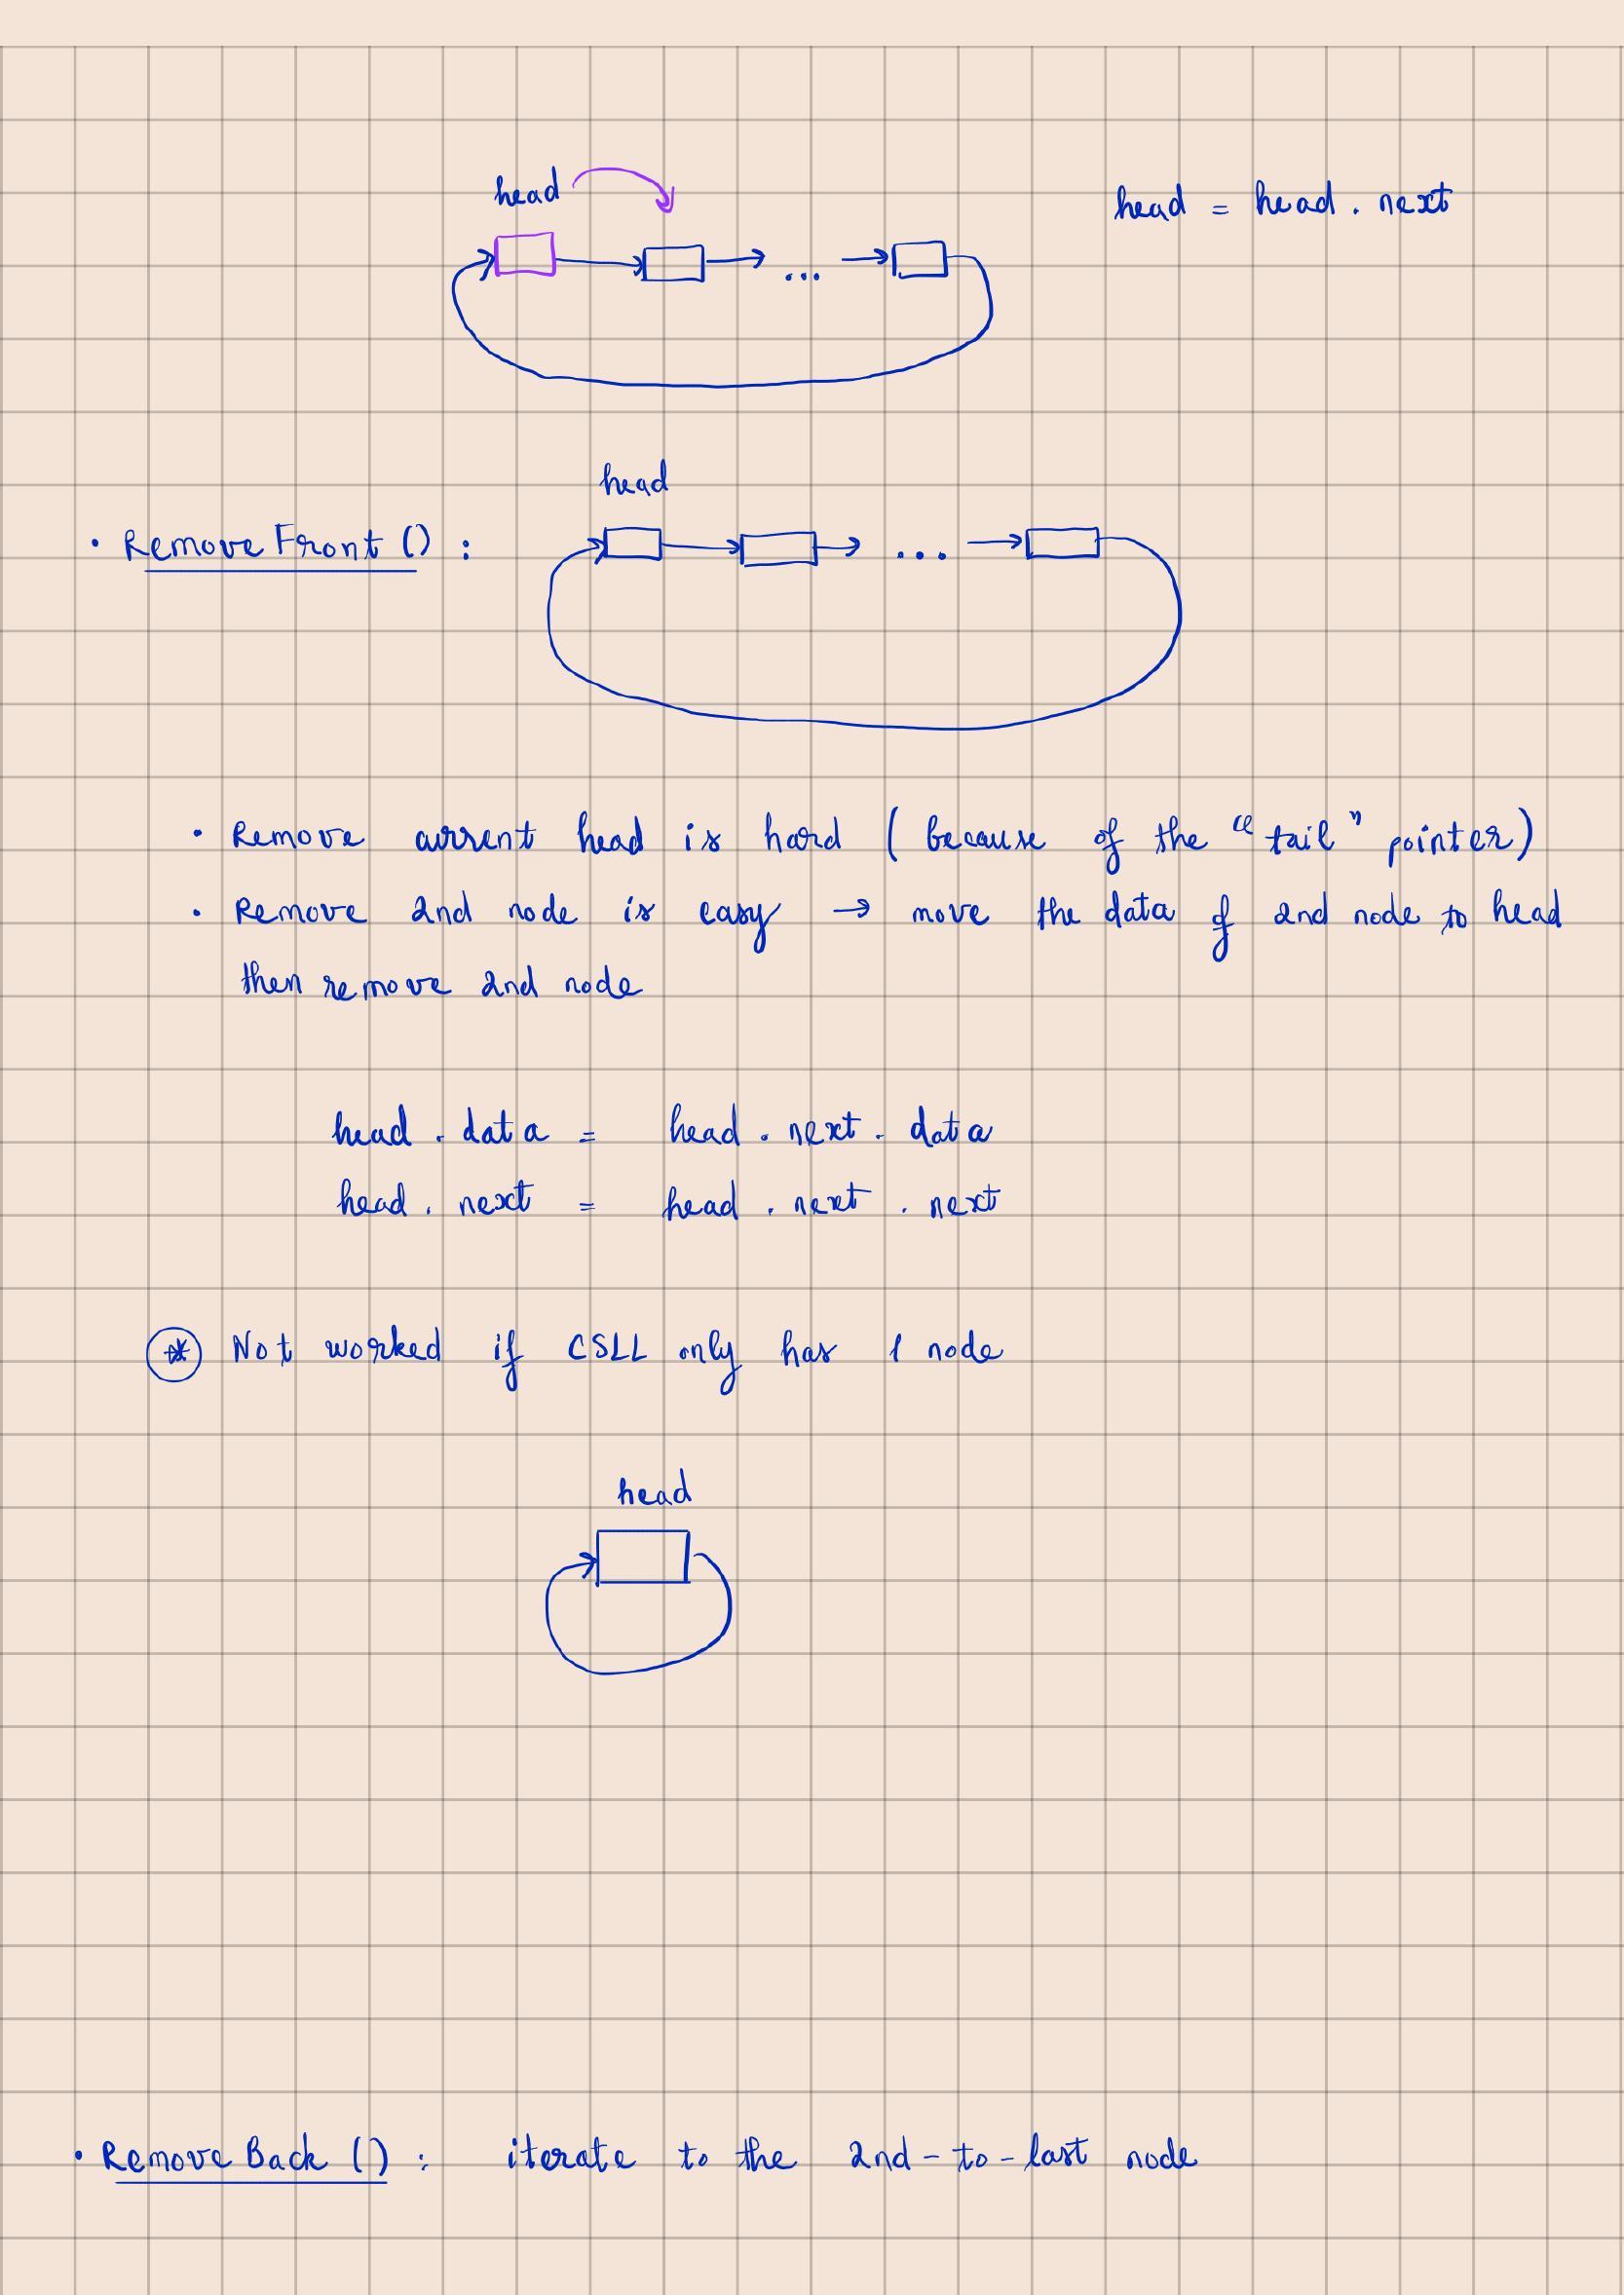 head
head = head . next
head
• Remove Front () :
• Remove current head is hard ( because of the "tail" pointer )
• Remove 2nd node is easy → move the data of 2nd node to head
then remove 2nd node
head . data = head . next . data
head . next = head . next . next
* Not worked if CSLL only has 1 node
head
• Remove Back () : iterate to the 2nd-to-last node